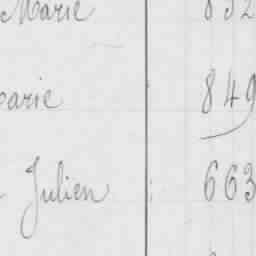 Marie 832
arie 849
Julien 663